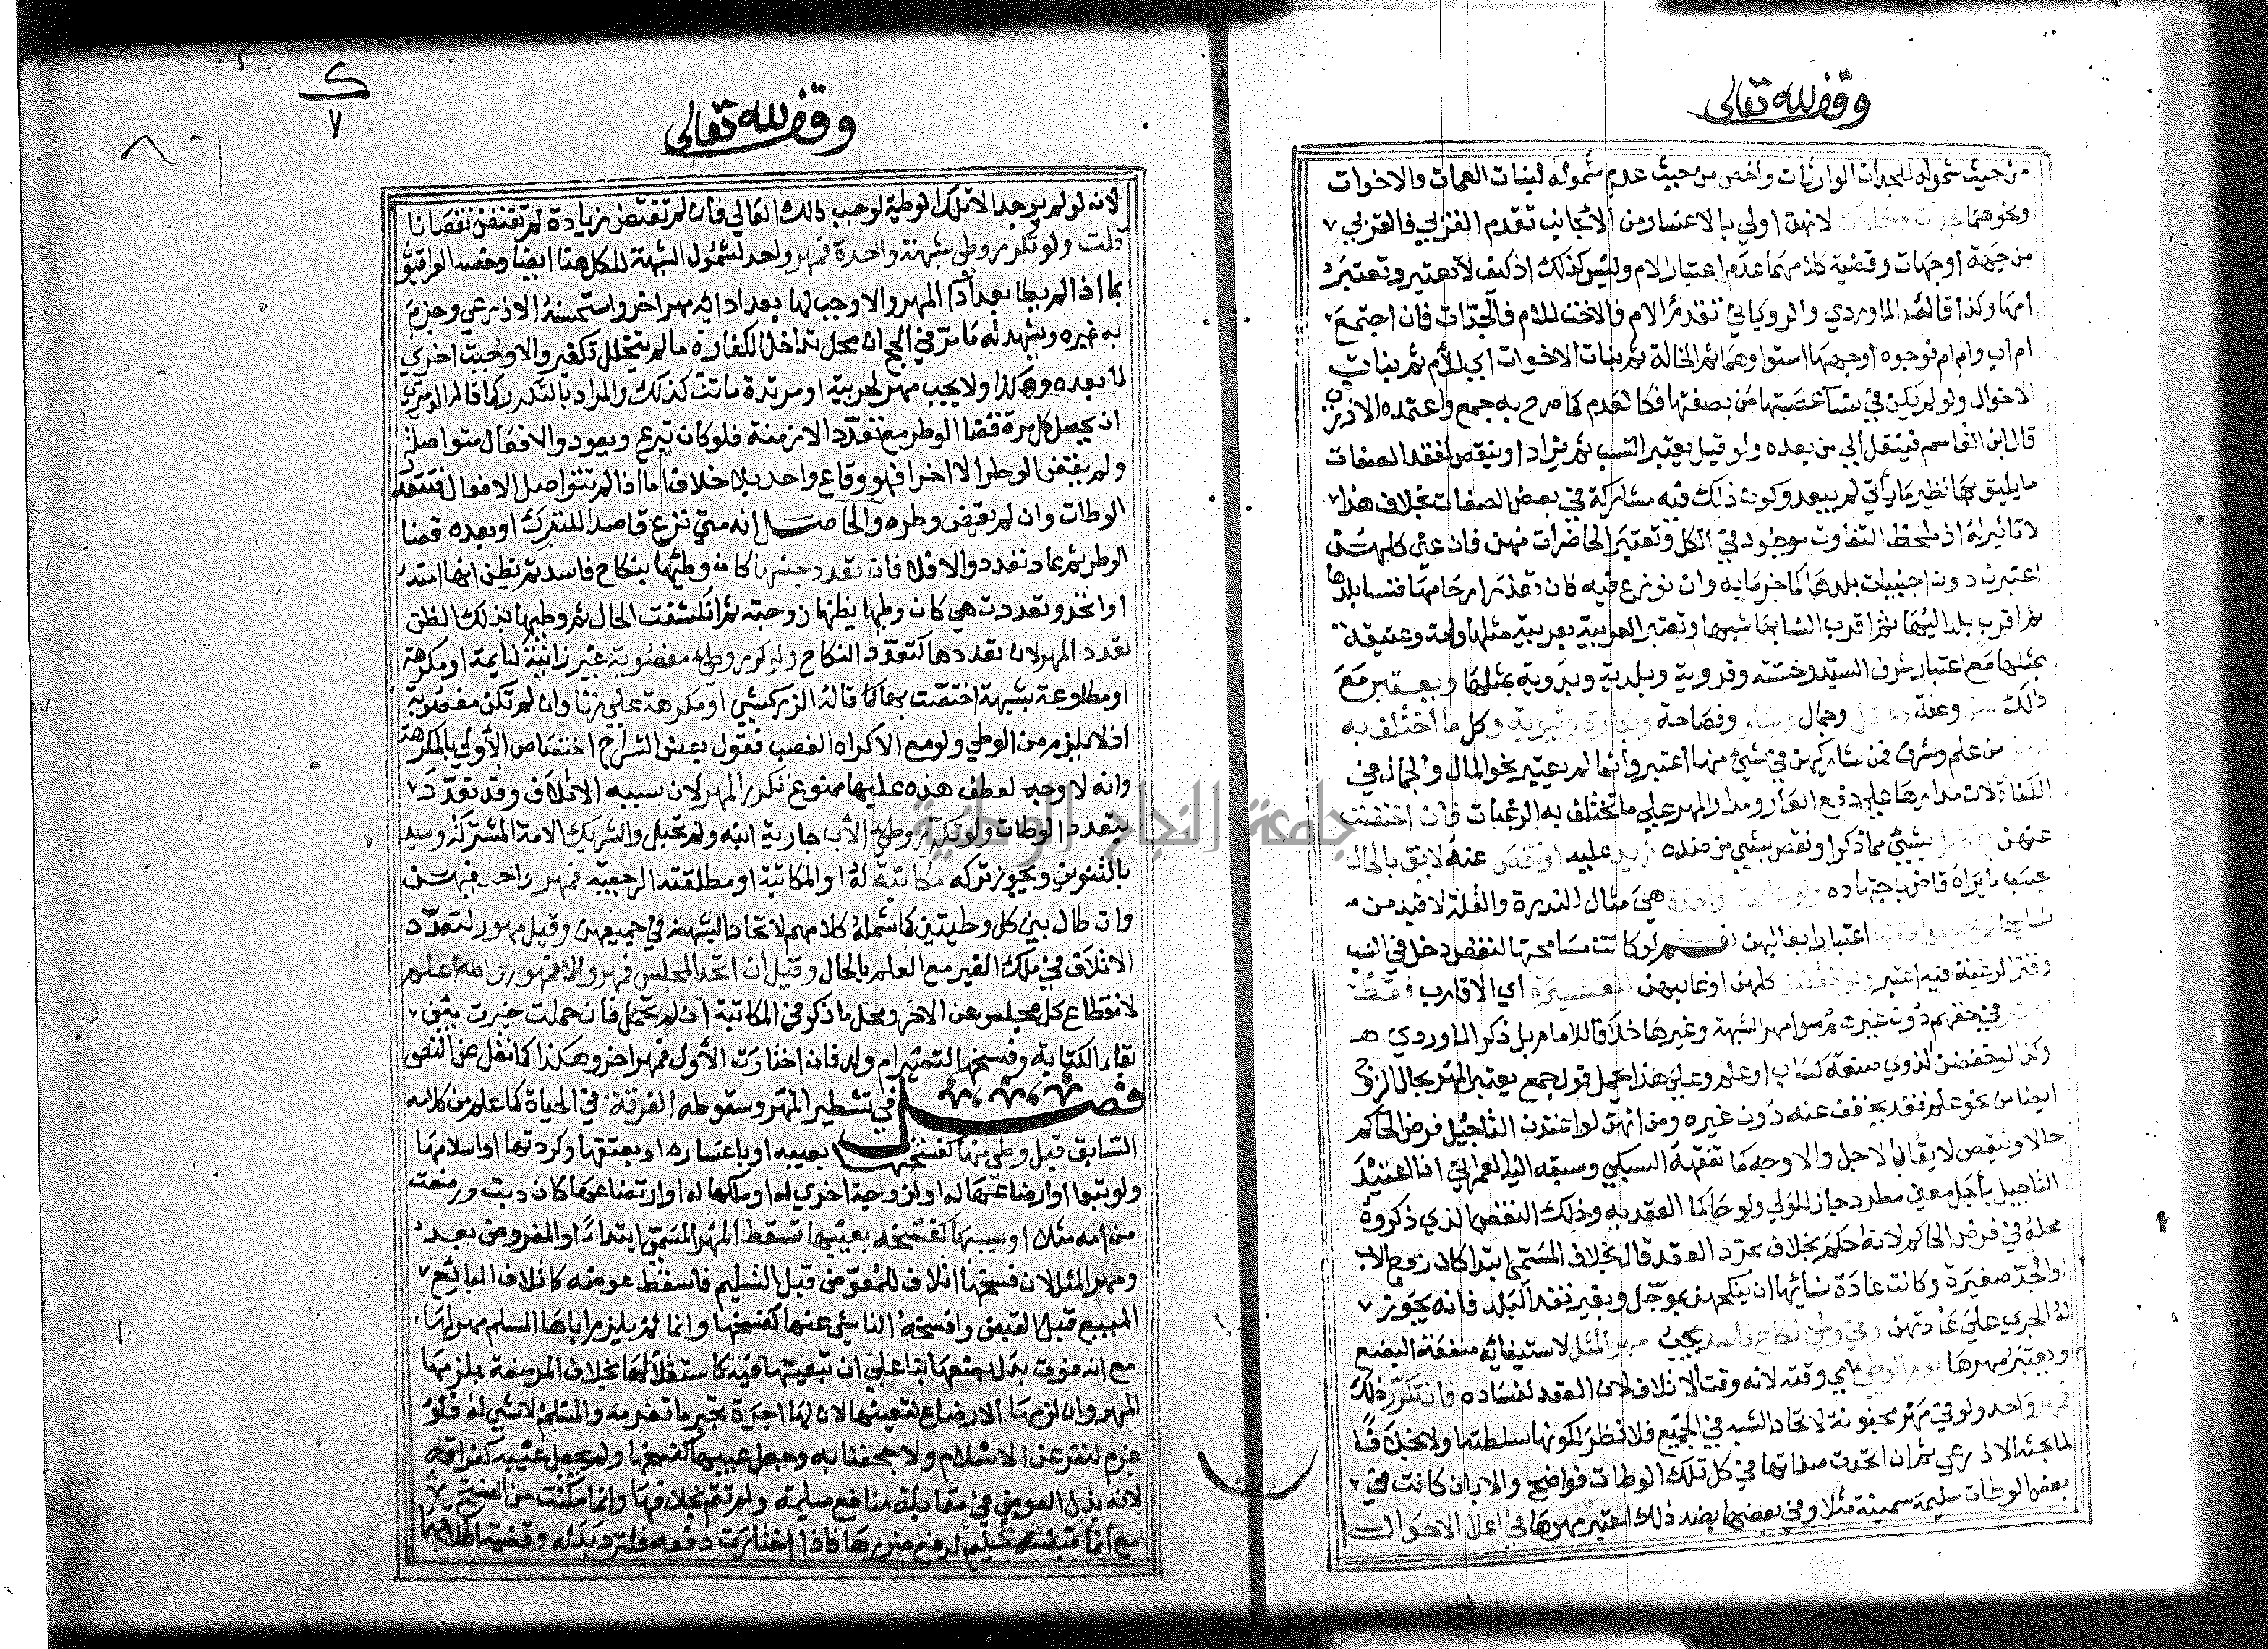 وقف لله تعالى
من حيث شموله للجدات الوارثات واخص من حيث عدم شموله لبنات العمات والاخوات
ونحوهما لانهن اولى بالاعتبار من الاجانب تقدم القربى فالقربى
من جهة اوجهات وقضية كلامهما عدم اعتبار الام وليس كذلك اذ كيف لا تعتبر وتعتبر
امها وكذا قال الماوردي والروياني تقدم الام فالاخت للام فالجدات فان اجتمع
ام اب وام ام فوجوه اوجهها استواوهما ثم الخالة ثم بنات الاخوات اي للام ثم بنات
الاخوال ولو لم يكن في نسآ عصبتها من بصفتها فكالعدم كما صرح به جمع واعتمده الاذرعي
قال ابن القاسم فينتقل الي من بعده ولو قيل يعتبر النسب ثم يزاد او ينقص لفقد الصفات
ما يليق بها نظير ما ياتي لم يبعد وكون ذلك فيه مشاركة في بعض الصفات بخلاف هذا
لا تاثير له اذ ملحظ التفاوت موجود في الكل وتعتبر الحاضرات منهن فان غبن كلهن
اعتبرن دون اجنبيات بلدها كما جزما به وان نوزع فيه فان تعذر ارحامها فنسا بلدها
ثم اقرب بلد اليها ثم اقرب النسا بها شبها وتعتبر العربية بعربية مثلها وامة وعتيقة
بمثلها مع اعتبار شرف السيد وخسته وقروية وبلدية وبدوية بمثلها ويعتبر مع
ذلك وعفة وجمال وفصاحة وكل ما اختلف به
من علم وشرف فمن شاركهن في شئ منها اعتبر وانما لم يعتبر نحو المال والجمال في
الكفاءة لان مدارها علي دفع العار ومدار المهر علي ما تختلف به الرغبات فان اختصت
عنهن بشئ مما ذكر او نقص بشئ من ضده زيد عليه او نقص عنه لايق بالحال
بحسب ما يراه قاض باجتهاده هي مثال للندرة والقلة لا قيد من
اعتبارا بغالبهن نعم لو كانت مسامحتها لنقص دخل في النسب
وفتر الرغبة فيه اعتبر كلهن او غالبهن للعشيرة اي الاقارب فقط
في حقهم دون غيرهم وسوا مهر الشبهة وغيرها خلافا للامام بل ذكر الماوردي
وكذا لو خفضن لذوي صنعة كشاب او علم وعلى هذا يحمل قول جمع يعتبر المهر بحال الزوج
ايضا من نحو علم فقد يخفف عنه دون غيره ومن انهن لو اعتدن التاجيل فرض الحاكم
حالا وينقص لايقا بالاجل والاوجه كما تفقهه السبكي وسبقه اليه العمراني اذا اعتيد
التاجيل باجل معين مطرد جاز للولي ولو حاكما العقد به وذلك النقص الذي ذكروه
محله في فرض الحاكم لانه حكم بخلاف مجرد العقد قال بخلاف المسمى ابتدا كان زوج الاب
او الجد صغيرة وكانت عادة نسائها ان ينكحن بموجل وبغير نقد البلد فانه يجوز
له الجري على عادتهن وفي وطئ نكاح فاسد يجب مهر المثل لاستيفائه منفعة البضع
ويعتبر مهرها يوم الوطئ اي وقته لانه وقت الاتلاف لان العقد لفساده فان تكرر ذلك
فمهر واحد ولو في مهر مجنونة لاتحاد الشبه في الجميع فلا نظر لكونها سلطته ولا خلافا
لما بحثه الاذرعي ثم ان اتحدت صفاتها في كل تلك الوطات فواضح والا بان كانت في
بعض الوطات سليمة سمينة مثلا وفي بعضها بضد ذلك اعتبر مهرها في اعلا الاحوال
ك
٧
٨
وقف لله تعالى
لانه لو لم يوجد الا تلك الوطية لوجب ذلك العالي فان لم تقتض زيادة لم تقتض نقصانا
قلت ولو تكرر وطئ بشبهة واحدة فمهر واحد لشمول الشبهة للكل هنا ايضا
بما اذا لم يطا بعد اداء المهر والا وجب لها بعد ادائه مهر اخر واستحسنه الاذرعي وجزم
به غيره ويشهد له ما مر في الحج ان محل تداخل الكفارة ما لم يتخلل تكفير والا وجبت اخرى
لما بعده وهكذا ولا يجب مهر لحربية او مرتدة ماتت كذلك والمراد بالتكرر كما قاله الدميري
ان يحصل بكل مرة قضا الوطر مع تعدد الازمنة فلو كان ينزع ويعود والافعال متواصلة
ولم يقض الوطر الا اخرا فهو وقاع واحد بلا خلاف اما اذا لم تتواصل الافعال فتتعدد
الوطات وان لم يقض وطره والحاصل انه متي نزع قاصدا للترك او بعده قضا
الوطر ثم عاد تعدد والا فلا فان تعدد جنسها كان وطئها بنكاح فاسد ثم يظن انها امته
او اتحد وتعددت هي كان وطئها يظنها زوجته ثم انكشفت الحال ثم وطئها بذلك الظن
تعدد المهر لان تعددها كتعدد النكاح ولو كرر وطئ مغصوبة غير زانية كنايمة او مكرهة
او مطاوعة بشبهة اختصت بها كما قاله الزركشي او مكرهة علي زنا وان لم تكن مغصوبة
اذ لا يلزم من الوطئ ولو مع الاكراه الغصب فقول بعض الشراح اختصاص الاولى بالمكرهة
وانه لا وجه لعطف هذه عليها ممنوع تكرر المهر لان سببه الاتلاف وقد تعدد
بتعدد الوطات ولو تكرر وطئ الاب جارية ابنه ولم تحبل والشريك الامة المشتركة وسيد
بالتنوين ويجوز تركه مكاتبة له او المكاتبة او مطلقته الرجعية فمهر واحد فيهن
وان طال بين كل وطيتين كما شمله كلامهم لاتحاد الشبهة في جميعهن وقيل مهور لتعدد
الاتلاف في ملك الغير مع العلم بالحال وقيل ان اتحد المجلس فمهر والا فمهور والله اعلم
لانقطاع كل مجلس عن الاخر ومحل ما ذكر في المكاتبة ان لم تحمل فان حملت خيرت بين
بقاء الكتابة وفسخها لتصير ام ولد فان اختارت الاول فمهر اخر وهكذا كما نقل عن النص
فصل في تشطير المهر وسقوطه الفرقة في الحياة كما علم من كلامه
السابق قبل وطئ منها كفسخها بعيبه او باعساره او بعتقها وكردتها او اسلامها
ولو تبعا او ارضاعها له او لزوجة اخري له او ملكها له او ارتضاعها كان دبت ورضعت
من امه مثلا او بسببها كفسخه بعيبها تسقط المهر المسمى ابتداءً او المفروض بعد
ومهر المثل لان فسخها اتلاف للمعوض قبل التسليم فاسقط عوضه كاتلاف البايع
المبيع قبل القبض وافسخه الناشئ عنها كفسخها وانما لم يلزم اباها المسلم مهر لها
مع انه فوت بدل بضعها بنا علي ان تبعيتها فيه كاستقلالها بخلاف المرضعة يلزمها
المهر وان لزمها الارضاع لتعينها لان لها اجرة تجبر ما تغرمه والمسلم لا شئ له فلو
غرم لنفر عن الاسلام ولا جحفنا به وجعل عيبها كفسخها ولم يجعل عيبه كفراقه
لانه بذل العوض في مقابلة منافع سليمة ولم تتم بخلافها وانما مكنت من الفسخ
مع لدفع ضررها فاذا اختارت دفعه فلترد بدله وقضية اطلاقها
جامعة النجاح الوطنية